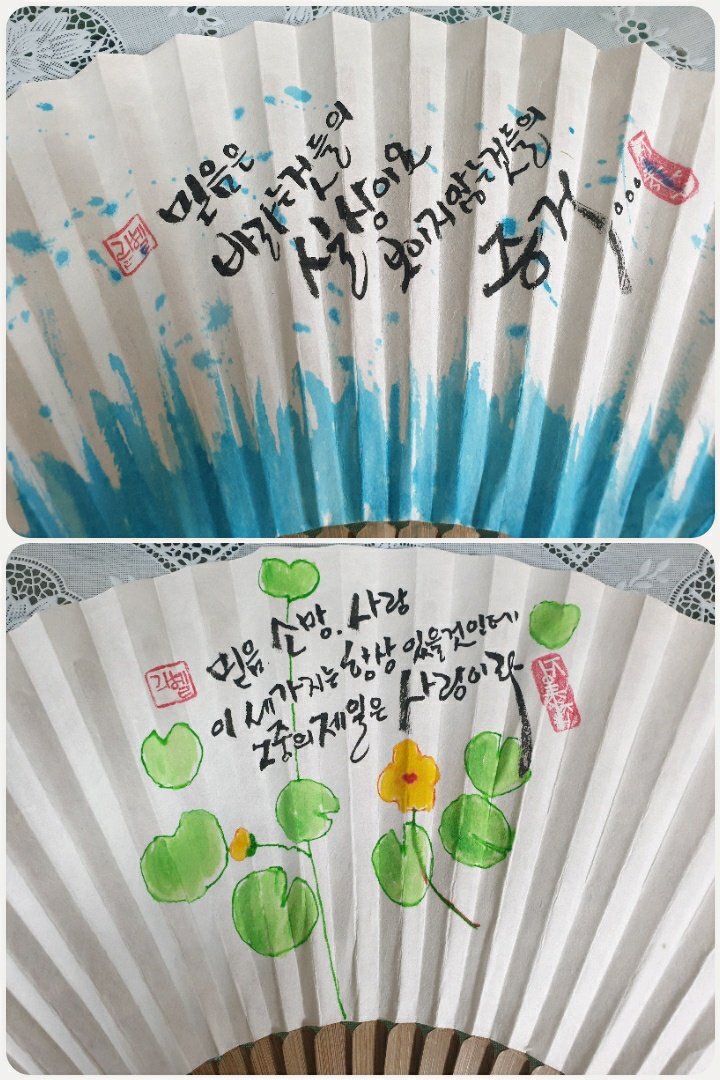 믿음은
바라는것들의
실상이요
보이지않는것들의
증거
라헬
믿음, 소망, 사랑
이 세가지는 항상 있을것인데
그중의제일은 사랑이라
라헬